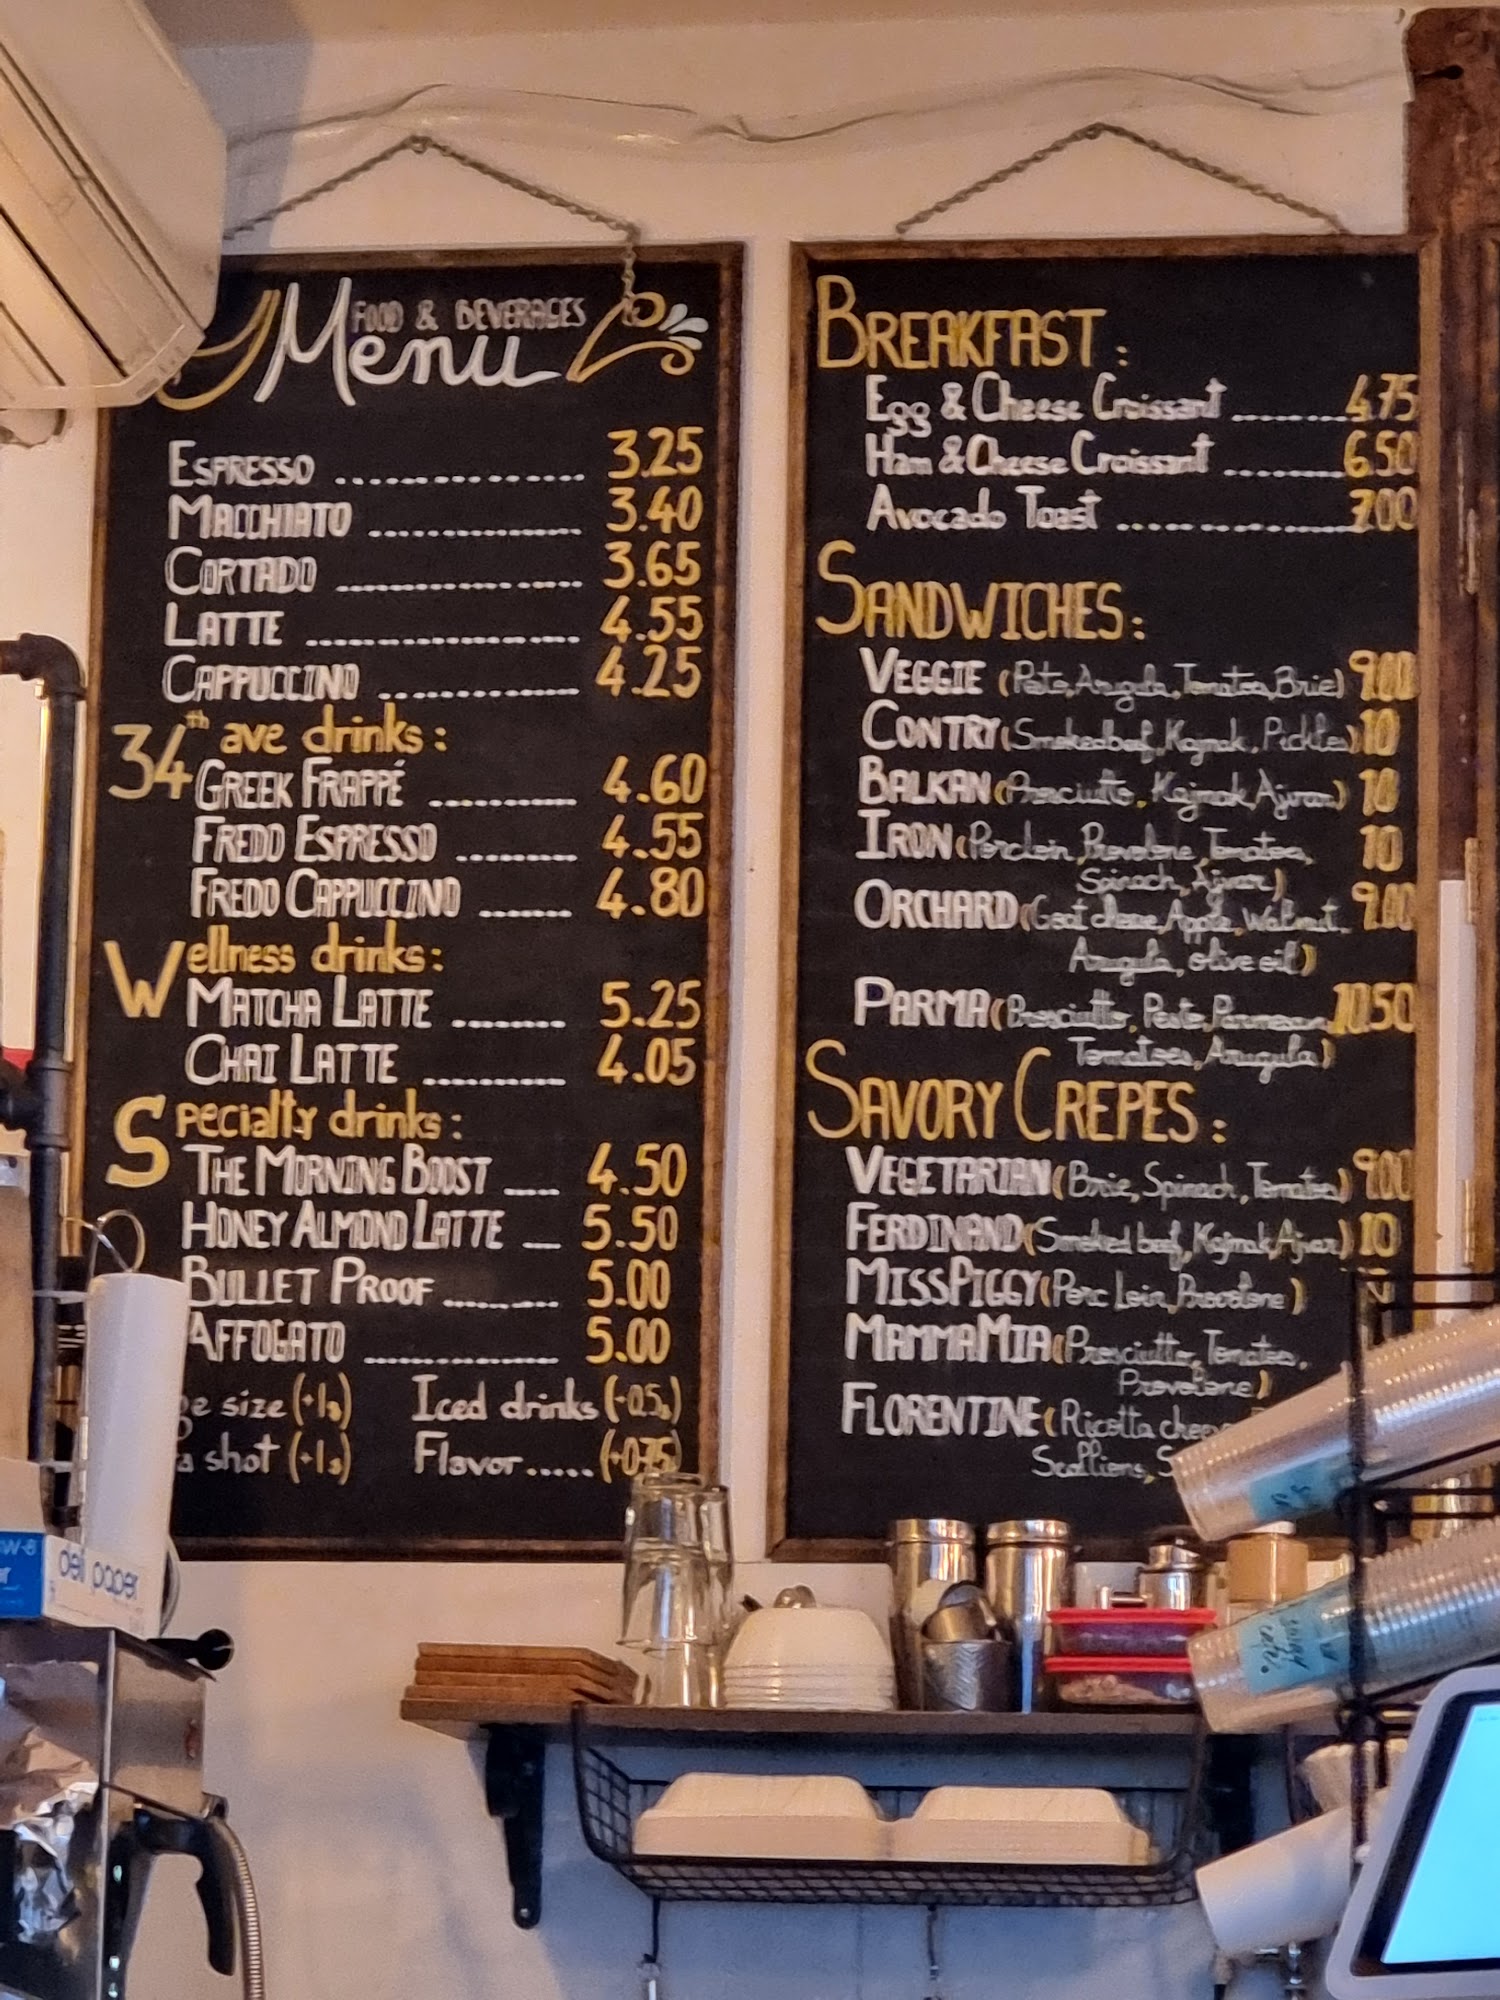 FOOD & BEVERAGES
Menu
ESPRESSO .............. 3.25
MACCHIATO ............ 3.40
CORTADO .............. 3.65
LATTE ................ 4.55
CAPPUCCINO ........... 4.25
34th ave drinks:
GREEK FRAPPÉ ......... 4.60
FREDO ESPRESSO ....... 4.55
FREDO CAPPUCCINO ..... 4.80
Wellness drinks:
MATCHA LATTE ........ 5.25
CHAI LATTE .......... 4.05
Specialty drinks:
THE MORNING BOOST .... 4.50
HONEY ALMOND LATTE ... 5.50
BULLET PROOF ........ 5.00
AFFOGATO ............. 5.00
size (+1$) Iced drinks (+0.5$)
shot (+1$) Flavor ..... (+0.75)
BREAKFAST:
Egg & Cheese Croissant ......... 4.75
Ham & Cheese Croissant ......... 6.50
Avocado Toast .................. 7.00
SANDWICHES:
VEGGIE (Pesto, Arugula, Tomatoes, Brie) 9.00
CONTRY (Smoked beef, Kajmak, Pickles) 10
BALKAN (Prosciutto, Kajmak, Ajvar) 10
IRON (Porcloin, Provolone, Tomatoes, 10
Spinach, Ajvar)
ORCHARD (Goat cheese, Apple, Walnut, 9.00
Arugula, olive oil)
PARMA (Prosciutto, Pesto, Parmesan 10.50
Tomatoes, Arugula)
SAVORY CREPES:
VEGETARIAN (Brie, Spinach, Tomatoes) 9.00
FERDINAND (Smoked beef, Kajmak, Ajvar) 10
MISSPIGGY (Porc Loin, Provolone)
MAMMAMIA (Prosciutto, Tomatoes,
Provolone)
FLORENTINE (Ricotta cheese
Scallions,
deli paper